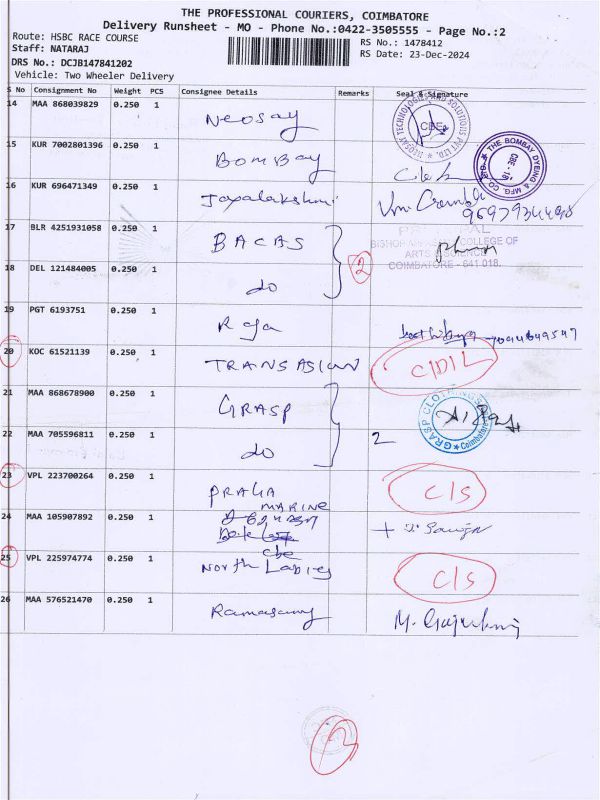 THE PROFESSIONAL COURIERS, COIMBATORE
Delivery Runsheet - MO - Phone No.:0422-3505555 - Page No.:2
Route: HSBC RACE COURSE
RS No.: 1478412
Staff: NATARAJ
RS Date: 23-Dec-2024
DRS No.: DCJB147841202
Vehicle: Two Wheeler Delivery
S No Consignment No Weight PCS Consignee Details Remarks Seal & Signature
14 MAA 868039829 0.250 1 Neosay
NEOSAY TECHNOLOGIES AND SOLUTIONS PVT. LTD. CBE
15 KUR 7002801396 0.250 1 BOMBAY
THE BOMBAY DYEING & MFG. CO. LTD. CBE - 18
16 KUR 696471349 0.250 1 Jayalakshmi
17 BLR 4251931058 0.250 1 BACAS
COLLEGE OF
ARTS & SCIENCE
COIMBATORE - 641 018.
2
18 DEL 121484005 0.250 1 do
19 PGT 6193751 0.250 1 Raja
20 KOC 61521139 0.250 1 TRANSASIAN C/D/L
21 MAA 868678900 0.250 1 GRASP
GRASP CLOTHINGS Coimbatore
22 MAA 705596811 0.250 1 do 2
23 VPL 223700264 0.250 1 PRAGA MARINE C/S
24 MAA 105907892 0.250 1
cbe
25 VPL 225974774 0.250 1 North Ladies C/S
26 MAA 576521470 0.250 1 Ramasamy